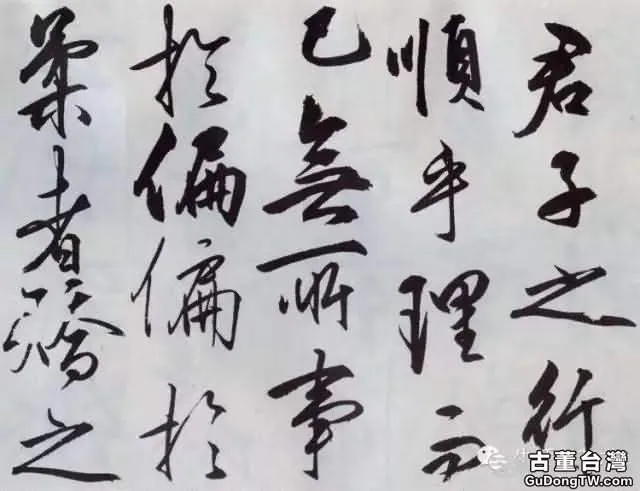 君子之行
順乎理而
已無所事
於偏偏於
柔者矯之
古董台灣
GuDongTW.com